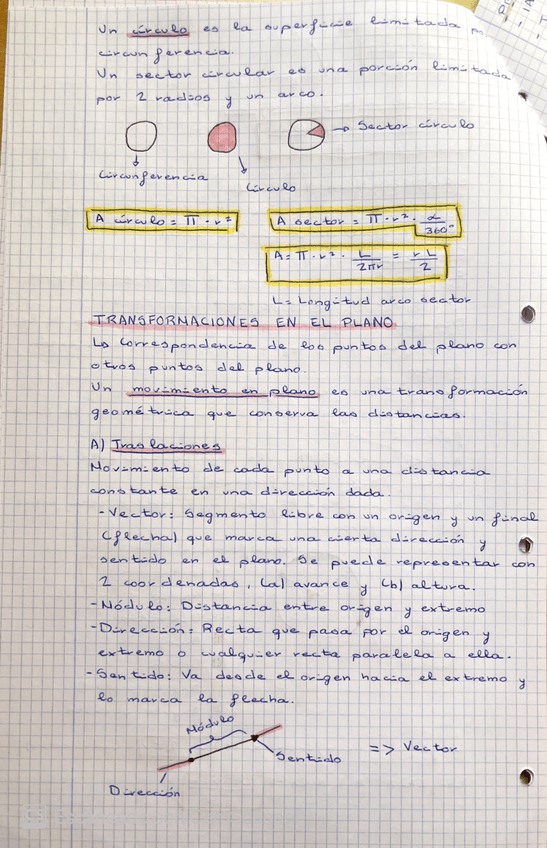 Un círculo es la superficie limitada
circunferencia.
Un sector circular es una porción limitada
por 2 radios y un arco.
→ Sector círculo
Circunferencia
Círculo
A círculo = π · r²
A sector = π · r² · α/360°
A = π · r² · L/2πr = rL/2
L = Longitud arco sector
TRANSFORMACIONES EN EL PLANO
La correspondencia de los puntos del plano con
otros puntos del plano.
Un movimiento en plano es una transformación
geométrica que conserva las distancias.
A) Traslaciones
Movimiento de cada punto a una distancia
constante en una dirección dada.
- Vector: Segmento libre con un origen y un final
(flecha) que marca una cierta dirección y
sentido en el plano. Se puede representar con
2 coordenadas, (a) avance y (b) altura.
- Módulo: Distancia entre origen y extremo
- Dirección: Recta que pasa por el origen y
extremo o cualquier recta paralela a ella.
- Sentido: Va desde el origen hacia el extremo y
lo marca la flecha.
Módulo
Sentido
=> Vector
Dirección